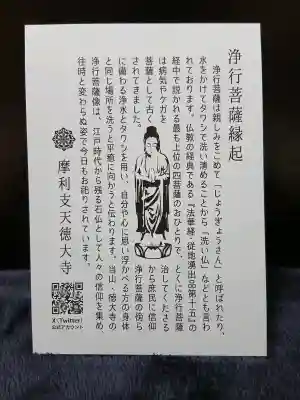 浄行菩薩縁起
浄行菩薩は親しみをこめて「じょうぎょうさん」と呼ばれたり、
水をかけてタワシで洗い清めることから「洗い仏」などとも言わ
れております。仏教の経典である『法華経・従地湧出品第十五』の
経中で説かれる最も上位の四菩薩のおひとりで、とくに浄行菩薩
は病気やケガを
治してくださる
菩薩として古く
から庶民に信仰
されてきました。
浄行菩薩の傍ら
に備わる浄水とタワシを用い、自分や心に思い浮かべる方の身体
と同じ場所を洗うと平癒に向かうと伝わります。当山・徳大寺の
浄行菩薩像は、江戸時代から残る石仏として人々の信仰を集め、
往時と変わらぬ姿で今日もお祀りされています。
摩利支天徳大寺
X(Twitter)
公式アカウント